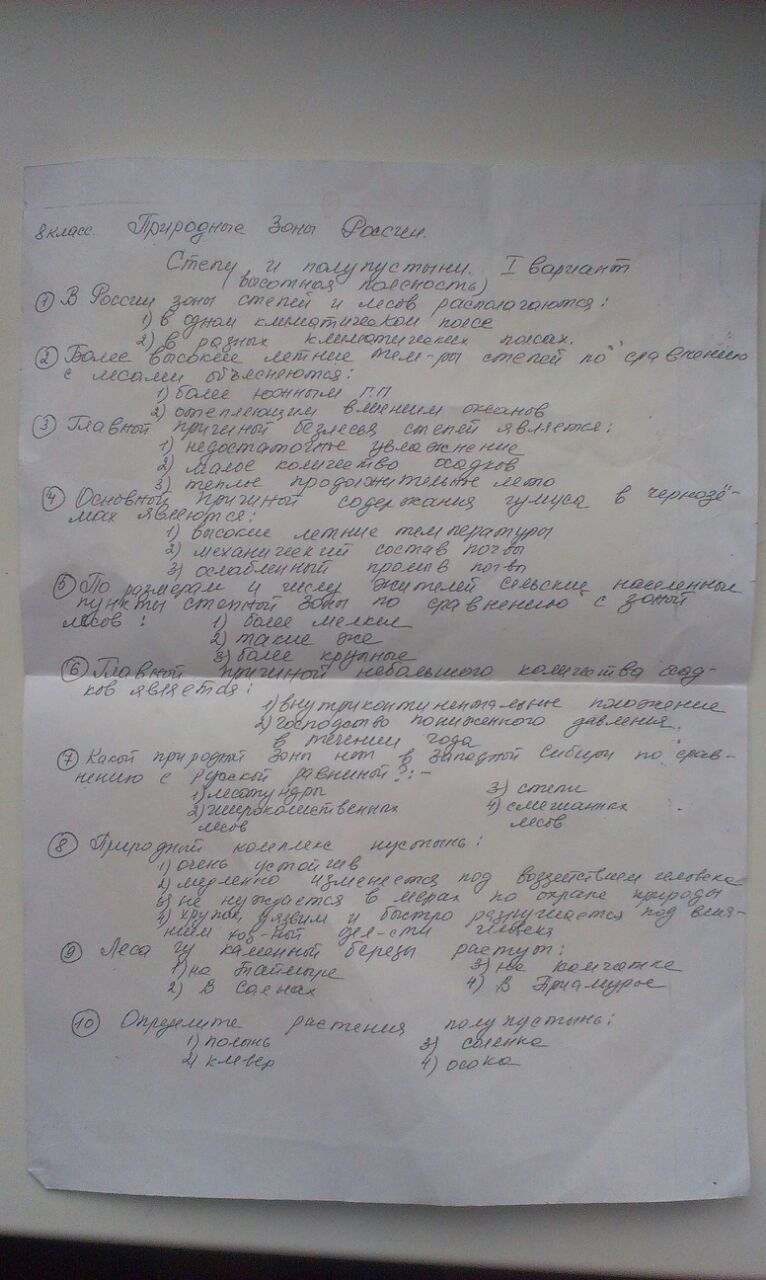 8 класс. Природные Зоны России.
Степи и полупустыни. I вариант
(высотная поясность)
① В России зоны степей и лесов располагаются:
1) в одном климатическом поясе
2) в разных климатических поясах.
② Более высокие летние тем-ры степей по сравнению
с лесами объясняются:
1) более южным Г.П
2) отепляющим влиянием океанов
③ Главной причиной безлесья степей является:
1) недостаточное увлажнение
2) малое количество осадков
3) теплое продолжительное лето
④ Основной причиной содержания гумуса в чернозё-
мах являются:
1) высокие летние температуры
2) механический состав почвы
3) ослабленный промыв почвы
⑤ По размерам и числу жителей сельские населенные
пункты степной зоны по сравнению с зоной
лесов:
1) более мелкие
2) такие же
3) более крупные
⑥ Главной причиной небольшого количества осад-
ков является:
1) внутриконтинентальное положение
2) господство пониженного давления
в течении года
⑦ Какой природной зоны нет в Западной Сибири по срав-
нению с Русской равниной?:-
1) лесотундры 3) степи
2) широколиственных 4) смешанных
лесов лесов
⑧ Природный комплекс пустынь:
1) очень устойчив
2) медленно изменяется под воздествием человека
3) не нуждается в мерах по охране природы
4) хрупок, уязвим и быстро разрушается под влия-
нием хоз-ной дея-сти человека
⑨ Леса из каменной березы растут:
1) на Таймыре 3) на Камчатке
2) В Саенах 4) В Приамурье
⑩ Определите растения полупустынь:
1) полынь 3) солянка
2) клевер 4) осока